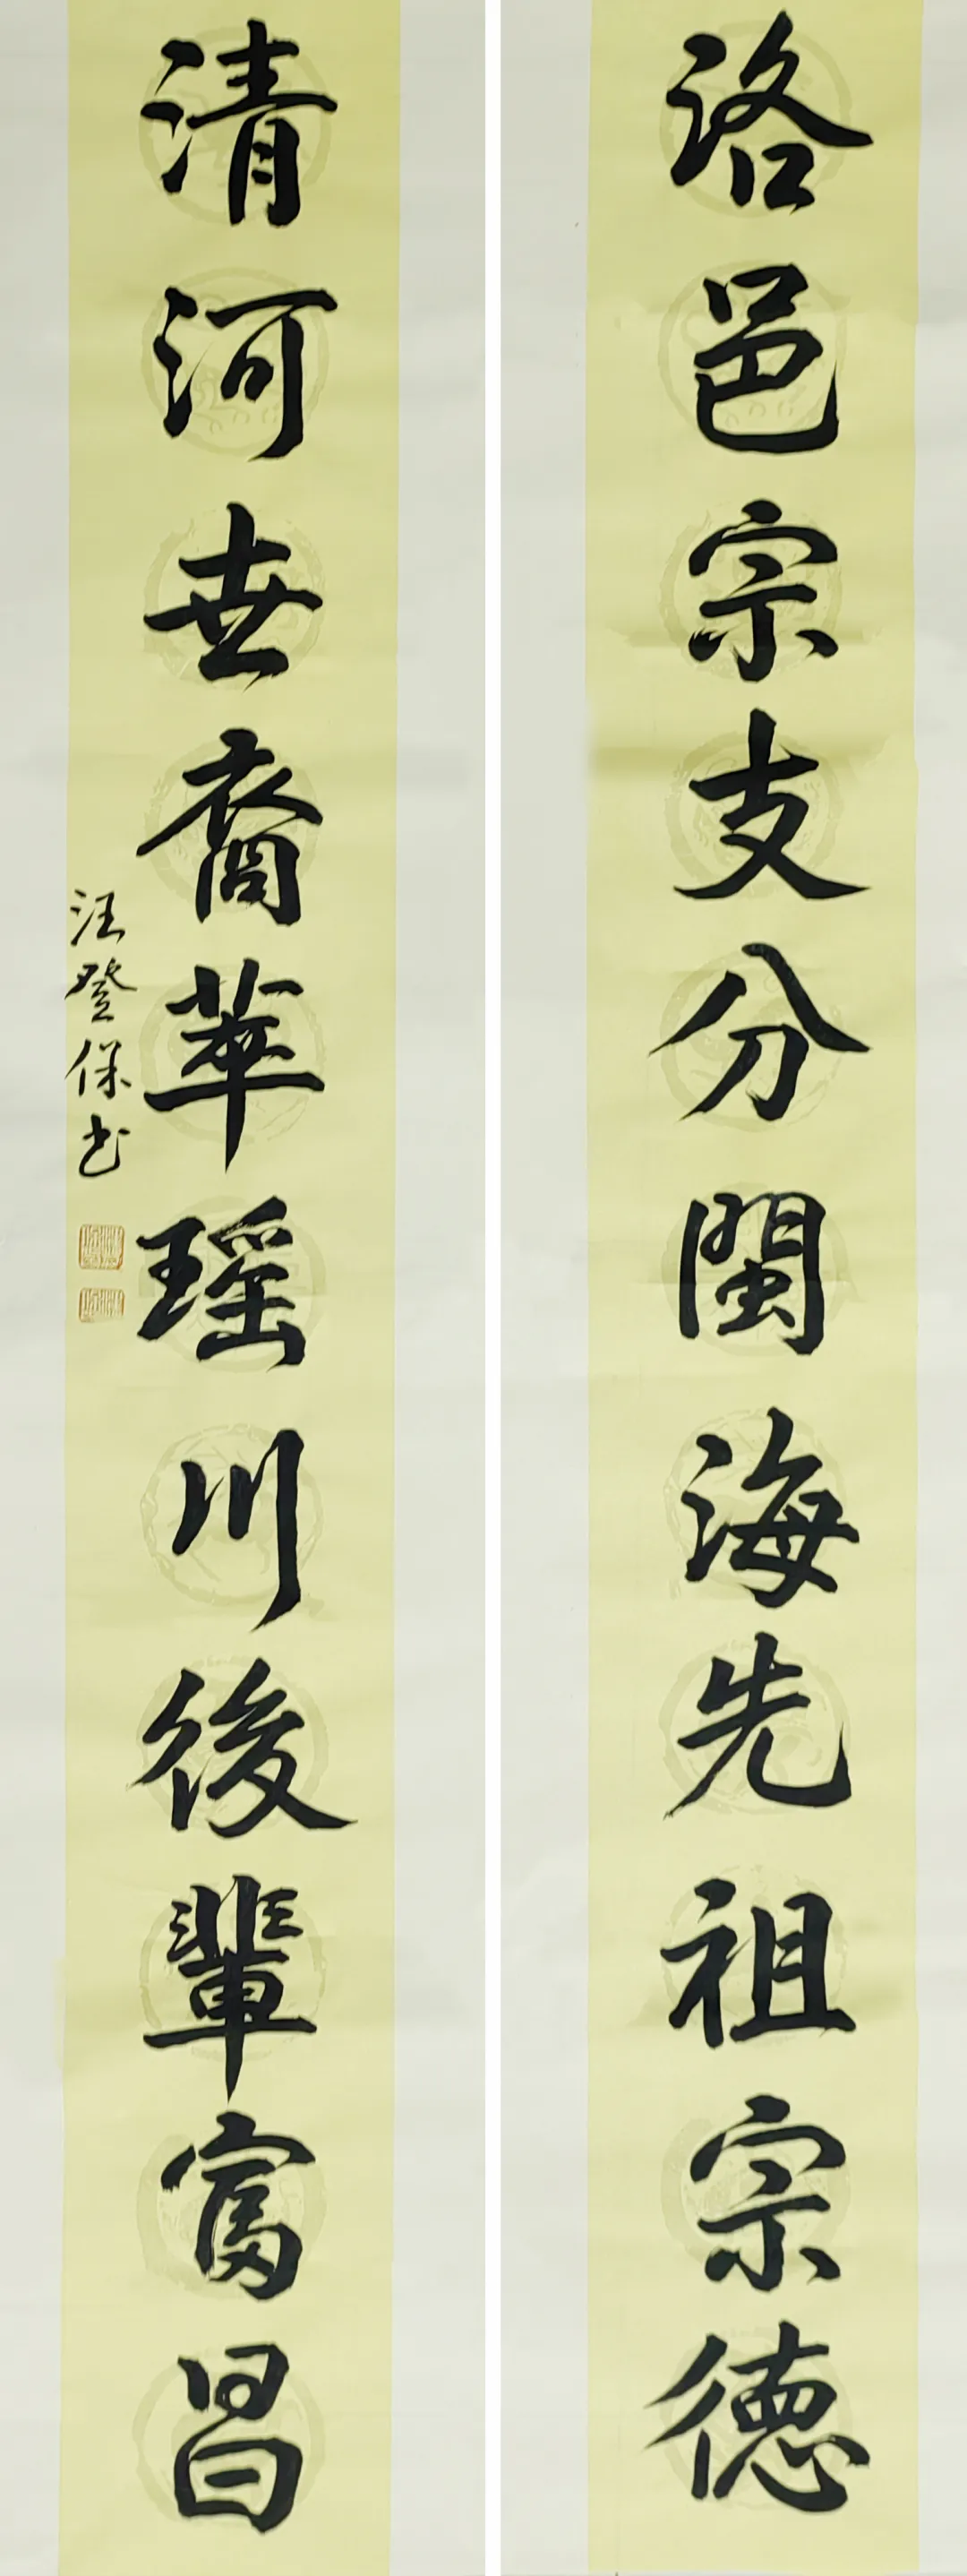 洛邑宗支分閩海先祖宗德
清河世裔華瑶川後輩富昌
汪登保书